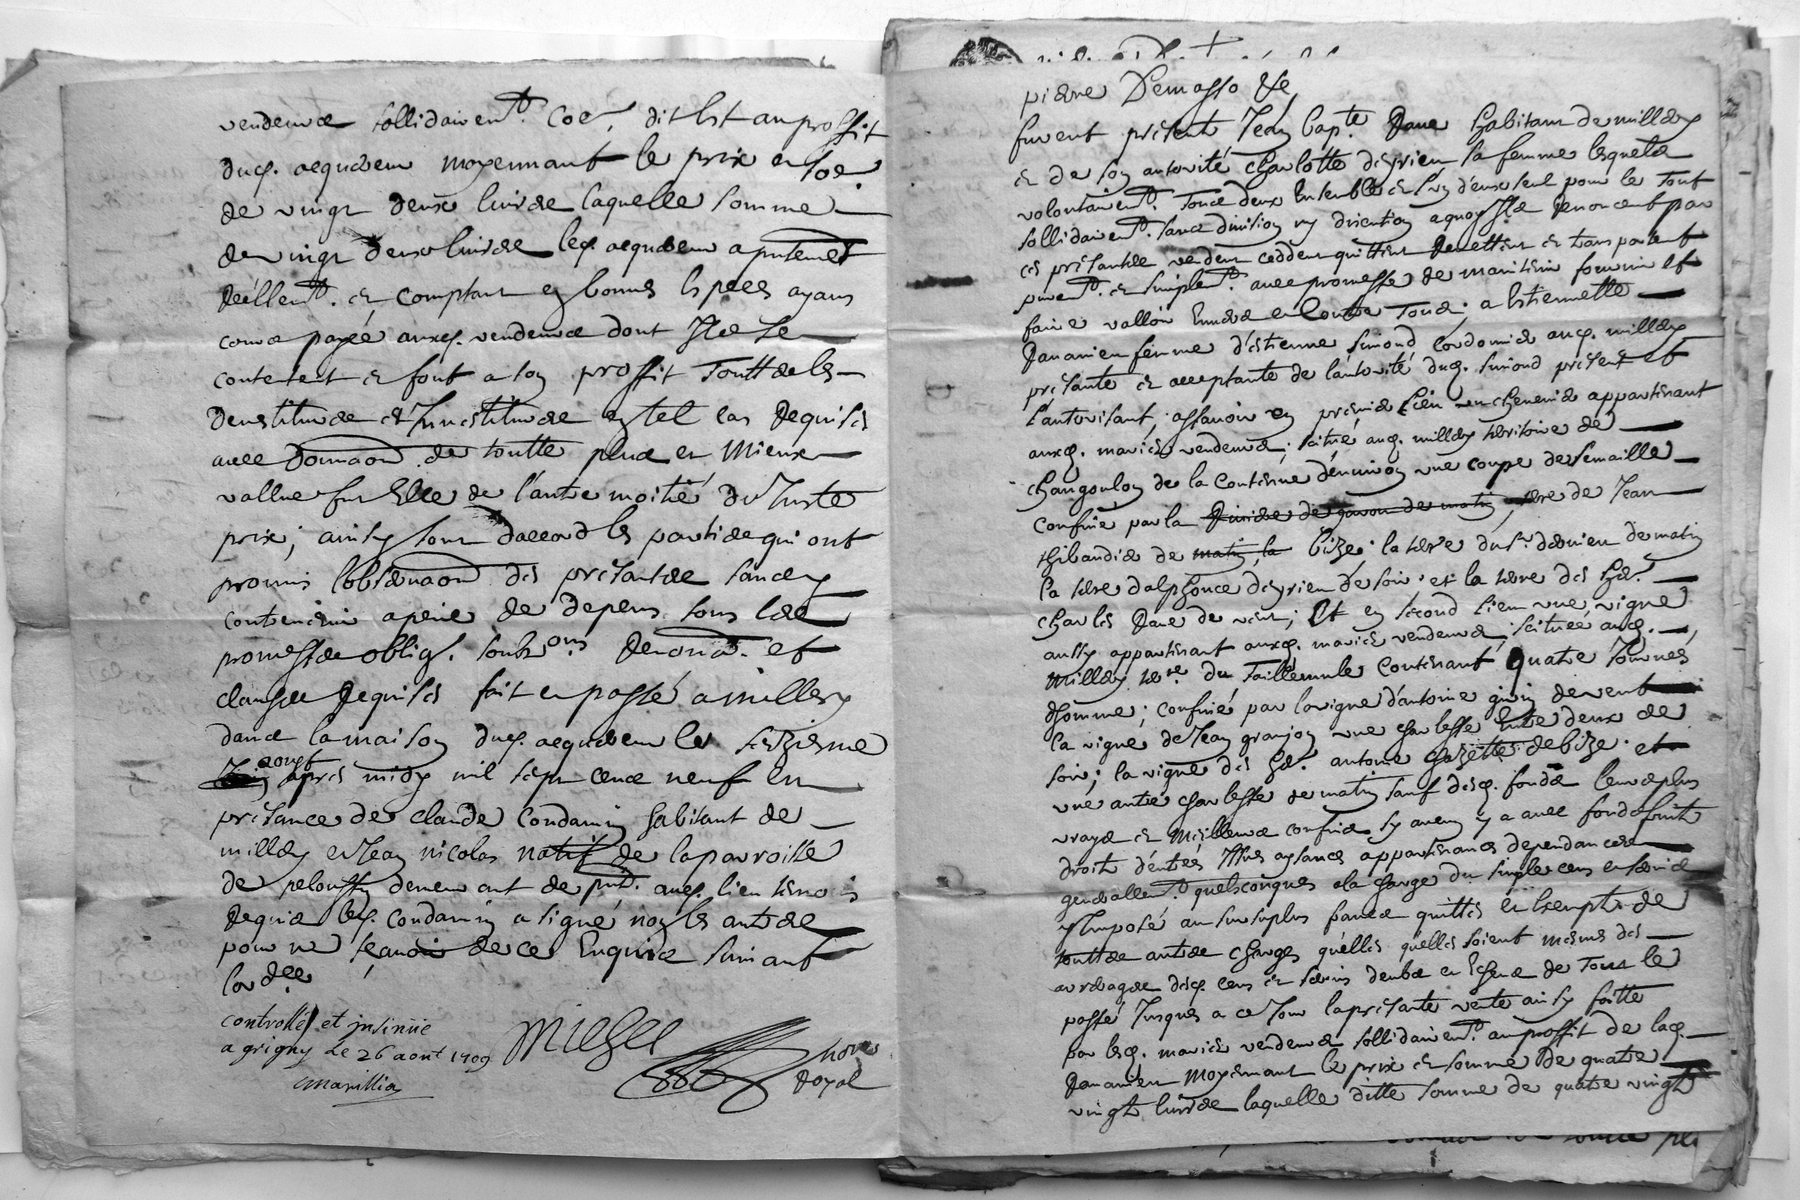 vendeurs sollidairemt. Coe. dit Est au proffit
dud. acquereur moyennant le prix et soe.
de vingt deux livres laquelle somme
de vingt deux livres led. acquereur a pntemet
réellemt. et comptant en bonnes Especes ayans
cours payée auxd. vendeurs dont Ils se
contentent et font a son proffit Touttes les
devestitures et Investitures en tel cas Requises
avec de toutte plus et Mieux
vallue fus Elle de l'autre moitié du Juste
prix; ainsy sont d'accord les parties qui ont
promis l'observaon des présantes sans y
contrevenir a peine de depens sous Les
promesses oblig. soubzons Renona. et
clauses Requises fait et passé a millery
dans la maison dud. acquereur le seizieme
aoust après midy mil sept cens neuf En
présance de claude Condamin habitant de
millery et Jean nicolas natif de la parroisse
de peloussin demeurant de pnt. aud. lieu tesmoins
Requis led. Condamin a signé non les autres
pour ne scavoir de ce Enquis suivant
l'ordce
controllé et insinué
a grigny le 26 aout 1709
Marillia
Michel
Nore
Royal
pierre Demasso &c
furent présents Jean bapte. Rave habitant de millery
et de son autorité Charlotte deyrieu sa femme lesquels
volontairemt. Tous deux Ensemble et l'un d'eux seul pour le Tout
sollidairemt. sans division ny discution a quoy Ils renoncent par
ces présantes vendent ceddent quittent Remettent et transportent
puremt. et simplemt. avec promesse de maintenir fournir et
faire valloir Envers et Contre Tous; a Estiennette
Ravanieu femme d'estienne Simond Cordonnier aud. millery
présante et acceptante de l'autorité dud. simond présent et
L'autorisant, assavoir en premier lieu un chenevier appartenant
auxd. mariés vendeurs; scitué aud. millery territoire de
changoulon de la Contenue d'environ une coupe de semaille
Confiné par la terre de Jean
thibaudier de bize; la terre du sr. dernieu de matin
la terre d'alphonce deyrieu de soir et la terre des hers.
charles Rave de vent; Et en second lieu une vigne
aussy appartenant auxd. mariés vendeurs scituée aud.
Millery tere du Taillemule Contenant quatre Journés
d'homme; confiné par la vigne d'antoine de vent
la vigne de Jean granjon une charlesse Entre deux de
soir; la vigne des hers. antoine de bize et
une autre charlesse de matin sauf desd. fonds leurs plus
vrays et Meilleurs confins sy aucun y a avec fonds fruits
droit d'entrés Issues aysances appartenances dependances
generallemt. quelsconques a la charge du simple cens et servis
y Imposé au sursplus francs quittes et Exempts de
touttes autres charges qu'elles qu'elles soient mesme des
arrerages desd. cens et servis deubs et Echeus de Tout le
passé Jusques a ce Jour la présante vente ainsy faitte
par lesd. mariés vendeurs sollidairemt. au proffit de lad.
Ravanieu moyennant le prix et somme de quatre
vingt livres laquelle ditte somme de quatre vingt